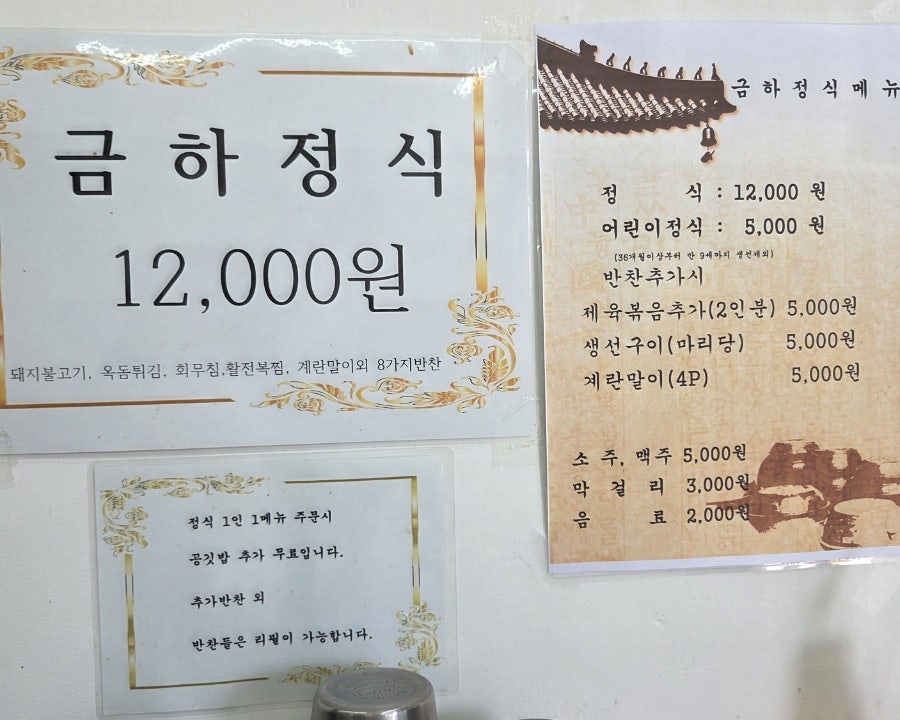 금 하 정 식
12,000원
돼지불고기, 옥돔튀김, 회무침,활전복찜, 계란말이외 8가지반찬
정식 1인 1메뉴 주문시
공깃밥 추가 무료입니다.
추가반찬 외
반찬들은 리필이 가능합니다.
금 하 정 식 메 뉴
정 식 : 12,000 원
어린이정식 : 5,000 원
(36개월이상부터 만 9세까지 생선제외)
반찬추가시
제육볶음추가(2인분) 5,000원
생선구이(마리당) 5,000원
계란말이(4P) 5,000원
소 주, 맥주 5,000원
막 걸 리 3,000원
음 료 2,000원